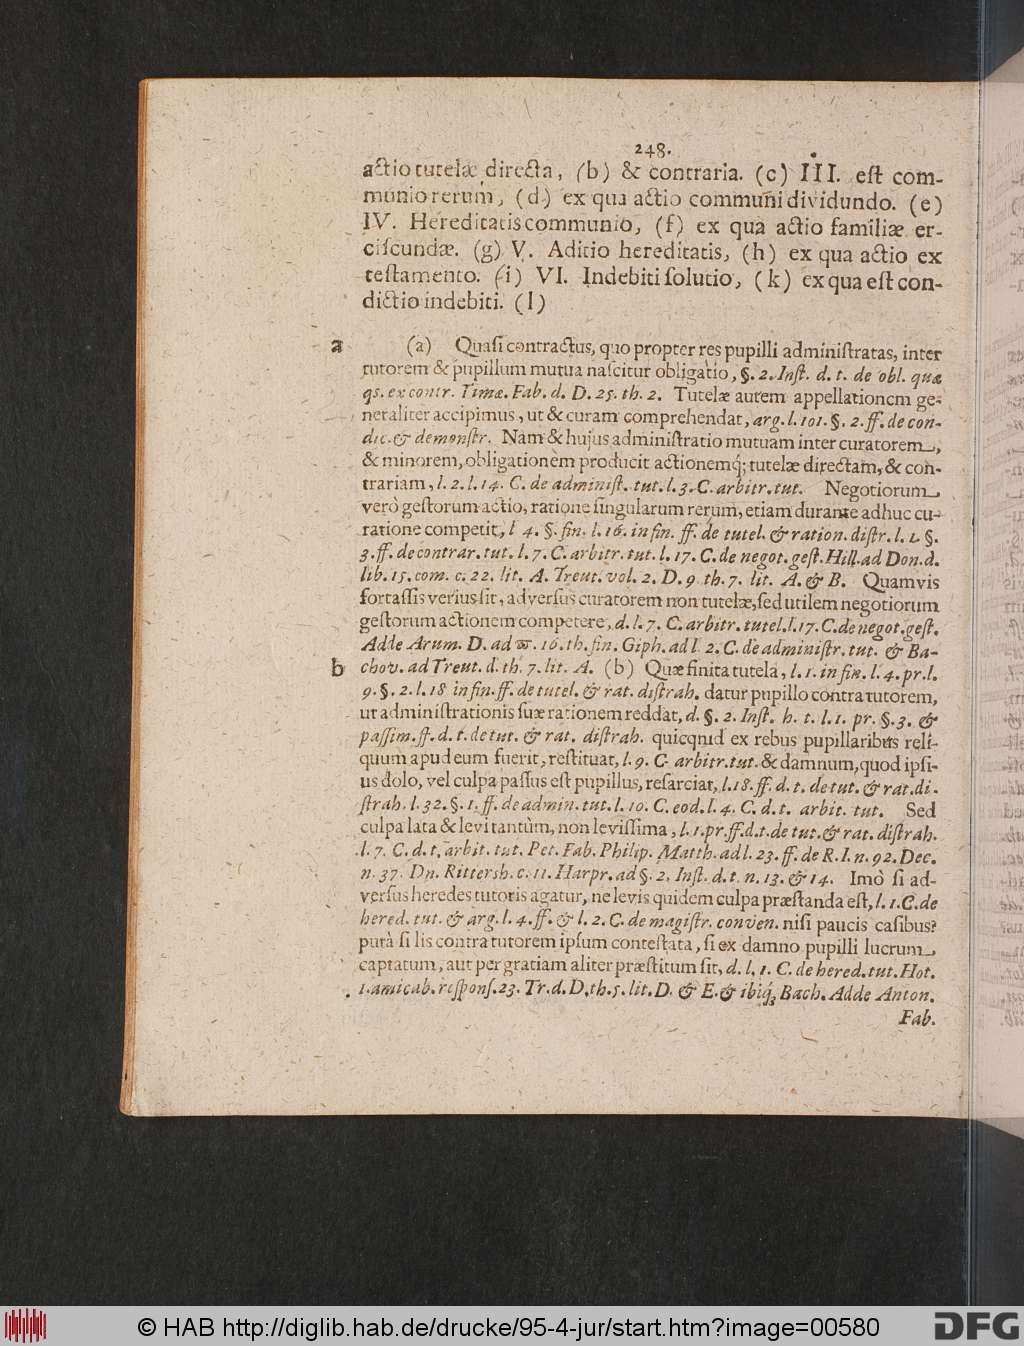 248.
actio tutelæ directa, (b) & contraria. (c) III. eſt com-
munio rerum, (d) ex qua actio communi dividundo. (e)
IV. Hereditatis communio, (f) ex qua actio familiæ er-
ciſcundæ. (g) V. Aditio hereditatis, (h) ex qua actio ex
teſtamento. (i) VI. Indebiti ſolutio, (k) ex qua eſt con-
dictio indebiti. (l)
a (a) Quaſi contractus, quo propter res pupilli adminiſtratas, inter
tutorem & pupillum mutua naſcitur obligatio, §. 2. Inſt. d. t. de obl. quæ
qs. ex contr. Timæ. Fab. d. D. 25. th. 2. Tutelæ autem appellationem ge-
neraliter accipimus, ut & curam comprehendat, arg. l. 101. §. 2. ff. de con-
dic. & demonſtr. Nam & hujus adminiſtratio mutuam inter curatorem,
& minorem, obligationèm producit actionemq́; tutelæ directam, & con-
trariam, l. 2. l. 14. C. de adminiſt. tut. l. 3. C. arbitr. tut. Negotiorum
verò geſtorum actio, ratione ſingularum rerum, etiam durante adhuc cu-
ratione competit, l 4. §. fin. l. 16. in fin. ff. de tutel. & ration. diſtr. l. 1. §.
3. ff. de contrar. tut. l. 7. C. arbitr. tut. l. 17. C. de negot. geſt. Hill. ad Don. d.
lib. 15. com. c. 22. lit. A. Treut. vol. 2. D. 9. th. 7. lit. A. & B. Quamvis
fortaſſis verius ſit, adverſus curatorem non tutelæ, ſed utilem negotiorum
geſtorum actionem competere, d. l. 7. C. arbitr. tutel. l. 17. C. de negot. geſt.
Adde Arum. D. ad ϖ. 16. th. fin. Giph. ad l. 2. C. de adminiſtr. tut. & Ba-
b chov. ad Treut. d. th. 7. lit. A. (b) Quæ finita tutela, l. 1. in fin. l. 4. pr. l.
9. §. 2. l. 18 in fin. ff. de tutel. & rat. diſtrah. datur pupillo contra tutorem,
ut adminiſtrationis ſuæ rationem reddat, d. §. 2. Inſt. h. t. l. 1. pr. §. 3. &
paſſim. ff. d. t. de tut. & rat. diſtrah. quicquid ex rebus pupillaribus reli-
quum apud eum fuerit, reſtituat, l. 9. C. arbitr. tut. & damnum, quod ipſi-
us dolo, vel culpa paſſus eſt pupillus, reſarciat, l. 18. ff. d. t. de tut. & rat. di-
ſtrah. l. 32. §. 1. ff. de admin. tut. l. 10. C. eod. l. 4. C. d. t. arbit. tut. Sed
culpa lata & levi tantùm, non leviſſima, l. 1. pr. ff. d. t. de tut. & rat. diſtrah.
l. 7. C. d. t. arbit. tut. Pet. Fab. Philip. Matth. ad l. 23. ff. de R. I. n. 92. Dec.
n. 37. Dn. Rittersh. c. 11. Harpr. ad §. 2. Inſt. d. t. n. 13. & 14. Imò ſi ad-
verſus heredes tutoris agatur, ne levis quidem culpa præſtanda eſt, l. 1. C. de
hered. tut. & arg. l. 4. ff. & l. 2. C. de magiſtr. conven. niſi paucis caſibus?
putà ſi lis contra tutorem ipſum conteſtata, ſi ex damno pupilli lucrum
captatum, aut per gratiam aliter præſtitum ſit, d. l. 1. C. de hered. tut. Hot.
1. amicab. reſponſ. 23. Tr. d. D. th. 5. lit. D. & E. & ibiq́; Bach. Adde Anton.
Fab.
© HAB http://diglib.hab.de/drucke/95-4-jur/start.htm?image=00580
DFG